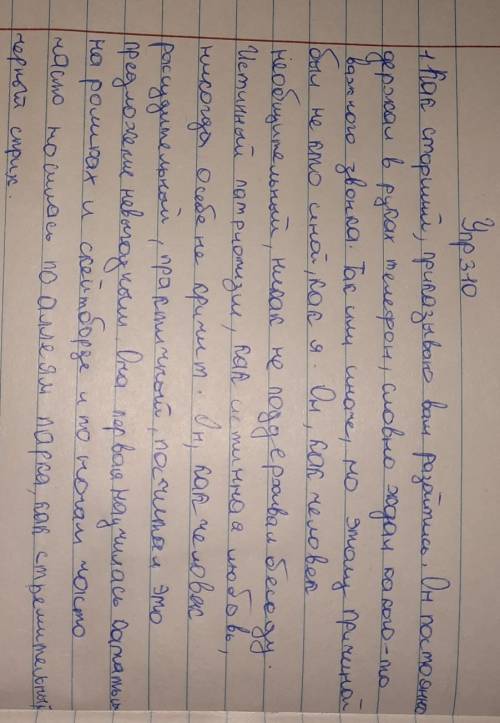 Упр 310
1 Как старший, приказываю вам разойтись. Он постоянно
держал в руках телефон, словно ждал какого-то
важного звонка. Так или иначе, но этому причиной
был не кто иной, как я. Он, как человек
необщительный, никак не поддерживал беседу.
Истинный патриотизм, как истинная любовь,
никогда о себе не кричит. Он, как человек
рассудительный, практичный, посчитал это
предложение невыгодным. Она первая научилась кататься
на роликах и скейтборде и по ночам часто
часто носилась по аллеям парка, как стремительный
черный стриж.